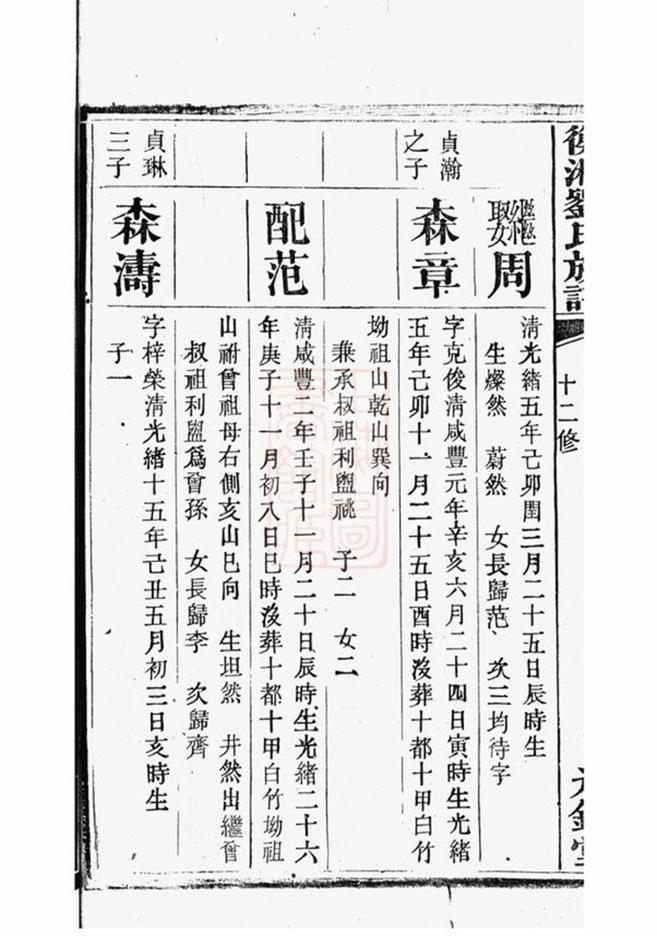 衡湘劉氏族譜
十二修
繼娶周
清光緒五年己卯閏三月二十五日辰時生
生燦然 蔚然 女長歸范 次三均待字
貞瀚之子
森章
字克俊清咸豐元年辛亥六月二十四日寅時生光緒
五年己卯十一月二十五日酉時沒葬十都十甲白竹
坳祖山乾山巽向
兼承叔祖利盥祧 子二 女二
配范
清咸豐二年壬子十一月二十日辰時生光緒二十六
年庚子十一月初八日巳時沒葬十都十甲白竹坳祖
山祔曾祖母右側亥山巳向 生坦然 井然出繼曾
叔祖利盥爲曾孫 女長歸李 次歸齊
貞琳三子
森濤
字梓榮清光緒十五年己丑五月初三日亥時生
子一